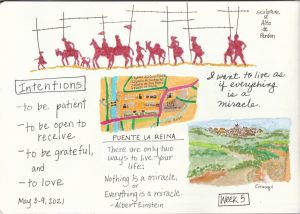 sculpture @
Alto
de
Perdon
Intentions
-to be patient
-to be open to
receive
-to be grateful,
and
-to love
May 8-9, 2021
PUENTE LA REINA
There are only two
ways to live your
life:
Nothing is a miracle,
or
Everything is a miracle.
-Albert Einstein
I want to live as
if everything
is a
miracle.
Cirauqui
Week 5